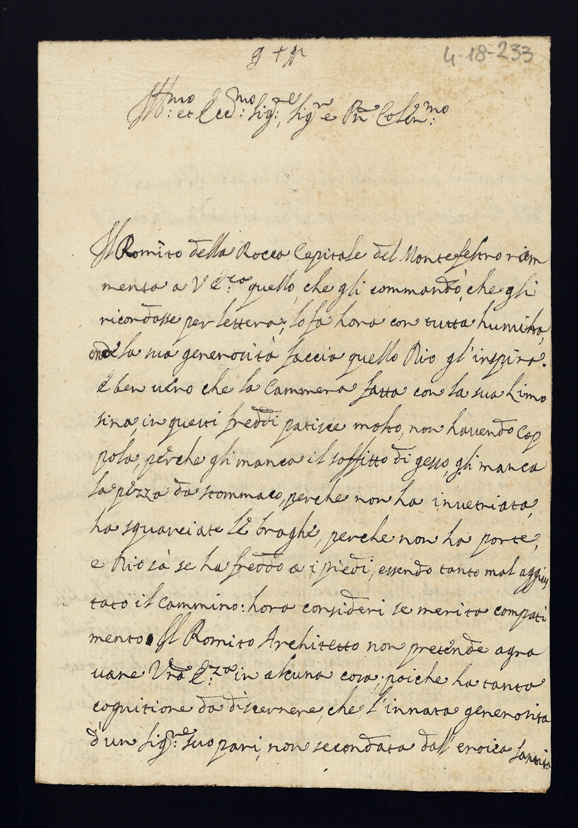 4-18-233
Ill:mo et Ecc:mo Sig:re, Sig:r e Prn Colen:mo
Il Romito della Rocca Capitale del Montefeltro ram
menta a V Ecc:za quello, che gli commandò, che gli
ricordasse per lettera: lo fa hora con tutta humiltà,
onde la sua generosità faccia quello Dio gl'inspira.
È ben vero che la Cammera fatta con la sua limo
sina in questi freddi patisce molto, non havendo Cap
pola, perche gli manca il soffitto di gesso, gli manca
la pezza da stommaco, perche non ha invetriata,
ha squarciate le braghe, perche non ha porte,
e Dio sà se ha freddo a i piedi, essendo tanto mal aggius
tato il Cammino: hora consideri se merita compati
mento. Il Romito Architetto non pretende agra
vare Vrã Ecc:za in alcuna cosa; poiche ha tanta
cognitione da discernere, che l'innata generosità
d'un Sig:re suo pari, non secondata dall'eroica